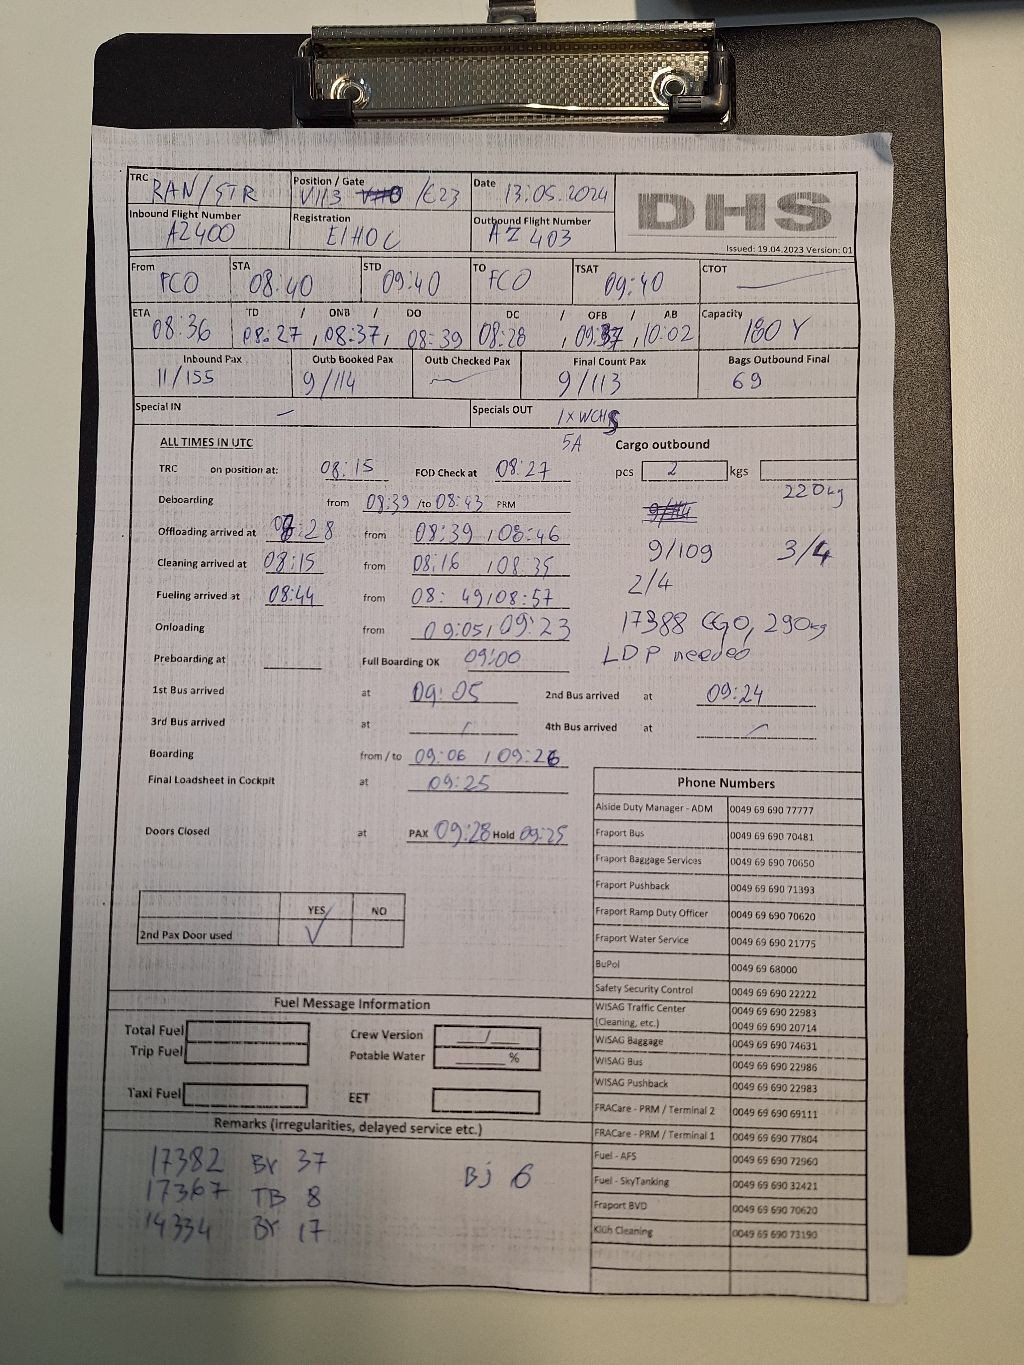 TRC RAN/STR Position / Gate V113 /C23 Date 13.05.2024 DHS
Inbound Flight Number AZ400 Registration EIHOC Outbound Flight Number AZ 403
Issued: 19.04.2023 Version: 01
From FCO STA 08:40 STD 09:40 TO FCO TSAT 09:40 CTOT
ETA 08:36 TD / ONB / DO 08:27, 08:37, 08:39 DC / OFB / AB 08:28, 09:37, 10:02 Capacity 180 Y
Inbound Pax 11/155 Outb Booked Pax 9/114 Outb Checked Pax Final Count Pax 9/113 Bags Outbound Final 69
Special IN – Specials OUT 1x WCHS
5A
ALL TIMES IN UTC Cargo outbound
TRC on position at: 08:15 FOD Check at 08:27 pcs 2 kgs
220kg
Deboarding from 08:39 /to 08:43 PRM
Offloading arrived at 08:28 from 08:39 / 08:46
9/109 3/4
Cleaning arrived at 08:15 from 08:16 / 08:35
2/4
Fueling arrived at 08:44 from 08:49/08:57
Onloading from 09:05/09:23 17388 CGO, 290kg
Preboarding at Full Boarding OK 09:00 LDP needed
1st Bus arrived at 09:05 2nd Bus arrived at 09:24
3rd Bus arrived at / 4th Bus arrived at
Boarding from / to 09:06 / 09:26
Final Loadsheet in Cockpit at 09:25
Doors Closed at PAX 09:28 Hold 09:25
YES NO
2nd Pax Door used ✓
Phone Numbers
Aiside Duty Manager - ADM 0049 69 690 77777
Fraport Bus 0049 69 690 70481
Fraport Baggage Services 0049 69 690 70650
Fraport Pushback 0049 69 690 71393
Fraport Ramp Duty Officer 0049 69 690 70620
Fraport Water Service 0049 69 690 21775
BuPol 0049 69 68000
Safety Security Control 0049 69 690 22222
WISAG Traffic Center 0049 69 690 22983
(Cleaning, etc.) 0049 69 690 20714
WISAG Baggage 0049 69 690 74631
WISAG Bus 0049 69 690 22986
WISAG Pushback 0049 69 690 22983
FRACare - PRM / Terminal 2 0049 69 690 69111
FRACare - PRM / Terminal 1 0049 69 690 77804
Fuel - AFS 0049 69 690 72960
Fuel - SkyTanking 0049 69 690 32421
Fraport BVD 0049 69 690 70620
Klüh Cleaning 0049 69 690 73190
Fuel Message Information
Total Fuel Crew Version /
Trip Fuel Potable Water %
Taxi Fuel EET
Remarks (irregularities, delayed service etc.)
17382 BY 37 BJ 6
17367 TB 8
14334 BY 17